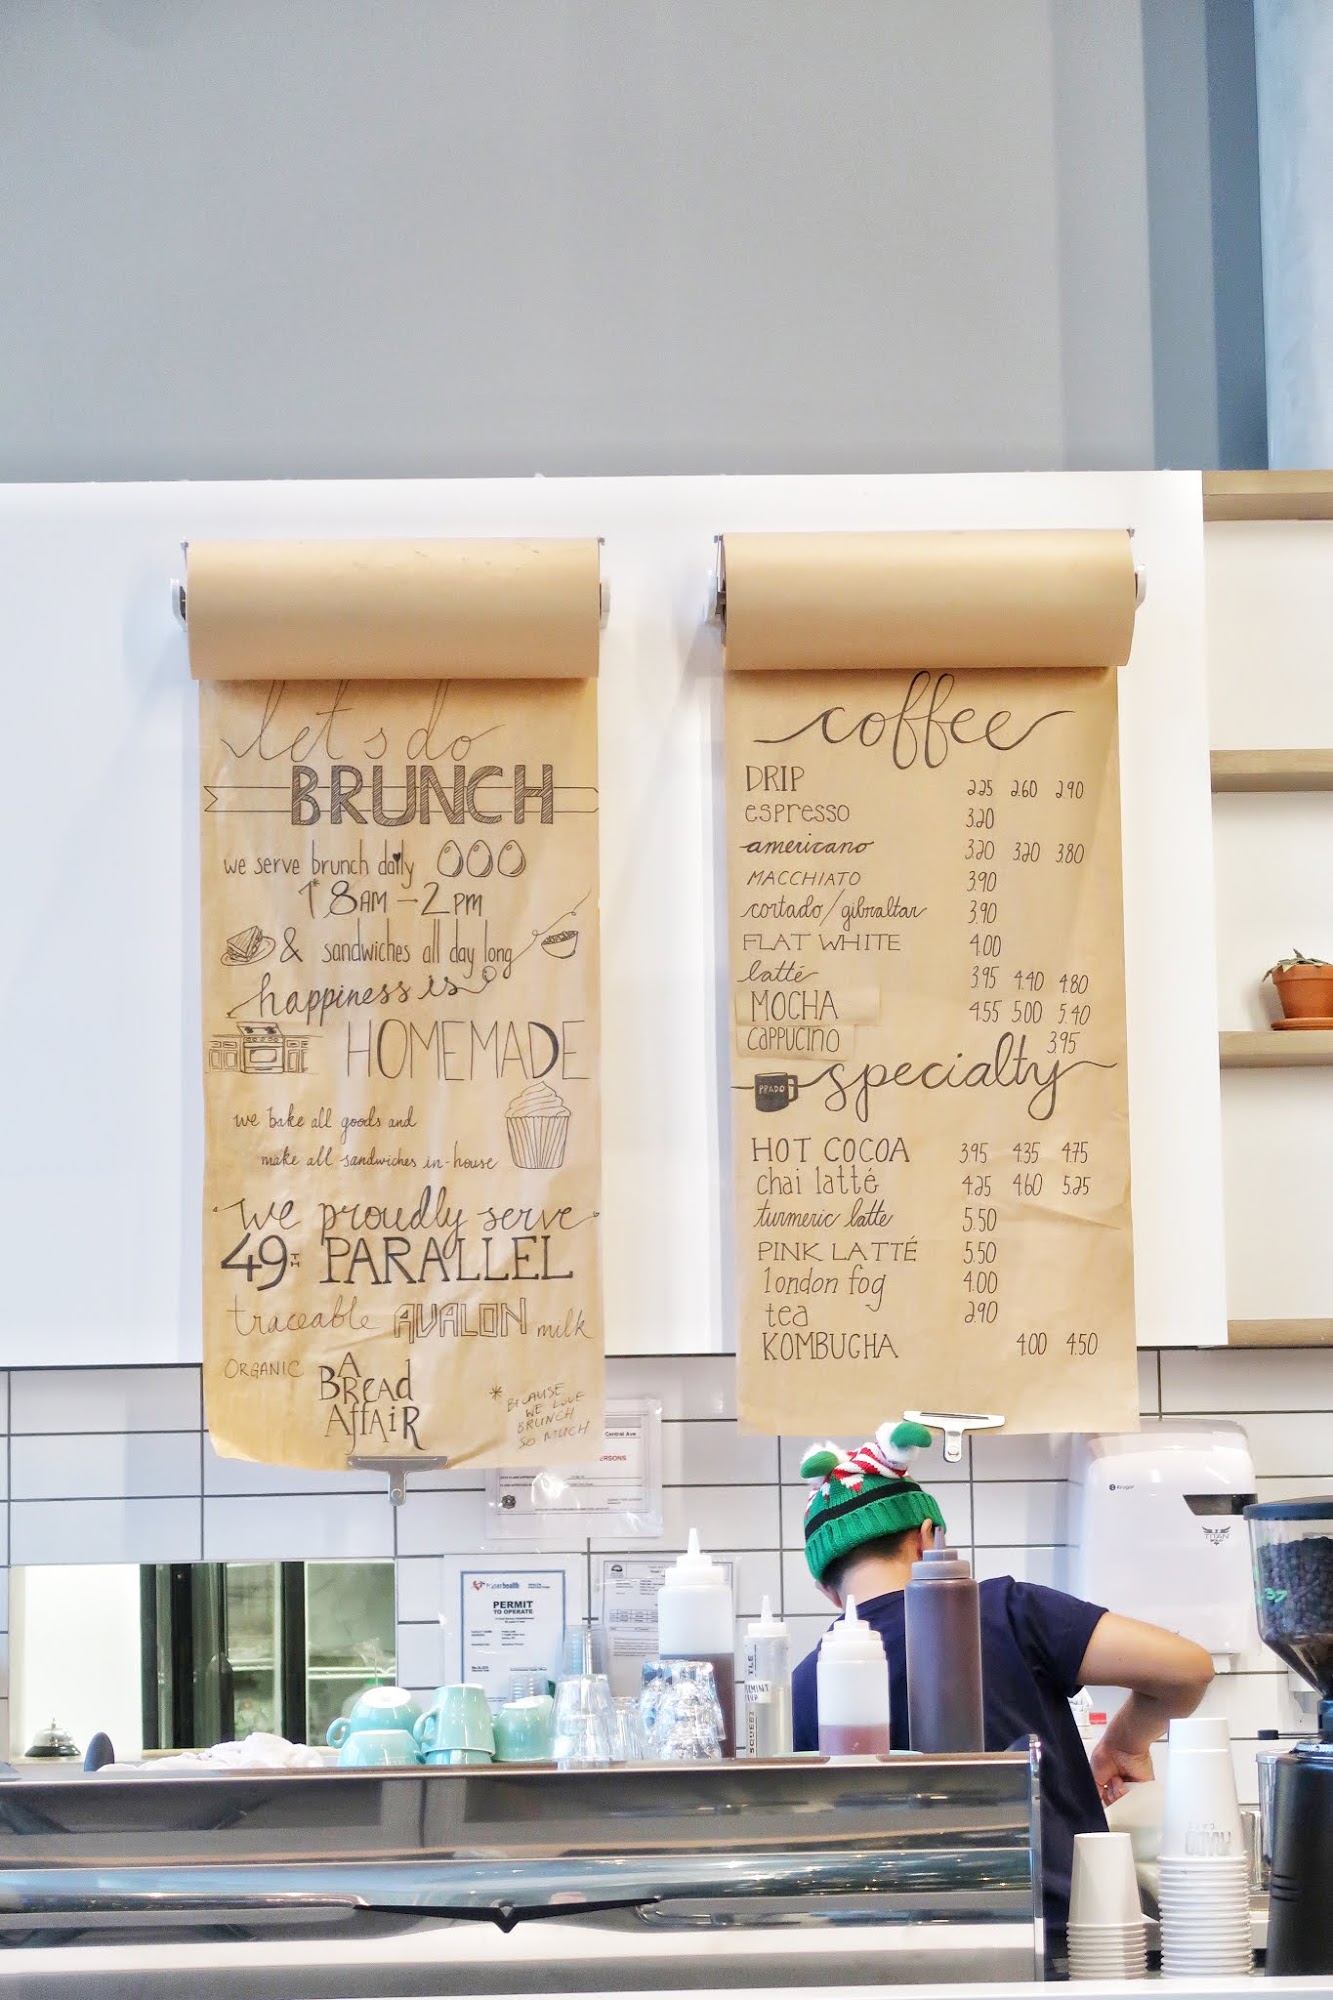 let's do
BRUNCH
we serve brunch daily
* 8AM - 2PM
& sandwiches all day long
happiness is
HOMEMADE
we bake all goods and
make all sandwiches in-house
we proudly serve
49TH PARALLEL
traceable AVALON milk
ORGANIC
A
BREAd
AffAiR
* BECAUSE
WE LOVE
BRUNCH
SO MUCH
coffee
DRIP 2.25 2.60 2.90
espresso 3.20
americano 3.20 3.20 3.80
MACCHIATO 3.90
cortado/gibraltar 3.90
FLAT WHITE 4.00
latté 3.95 4.40 4.80
MOCHA 4.55 5.00 5.40
CAPPUCINO 3.95
PRADO specialty
HOT COCOA 3.95 4.35 4.75
chai latté 4.25 4.60 5.25
turmeric latte 5.50
PINK LATTÉ 5.50
london fog 4.00
tea 2.90
KOMBUCHA 4.00 4.50
Central Ave
PERSONS
health
PERMIT
TO OPERATE
Kruger
TITAN
PRADO